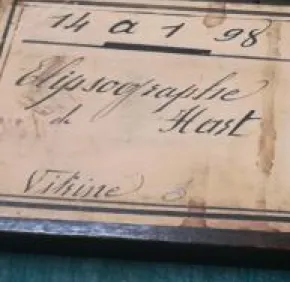 14 a 1 98
Elipsographe
de Hart
Vitrine 6